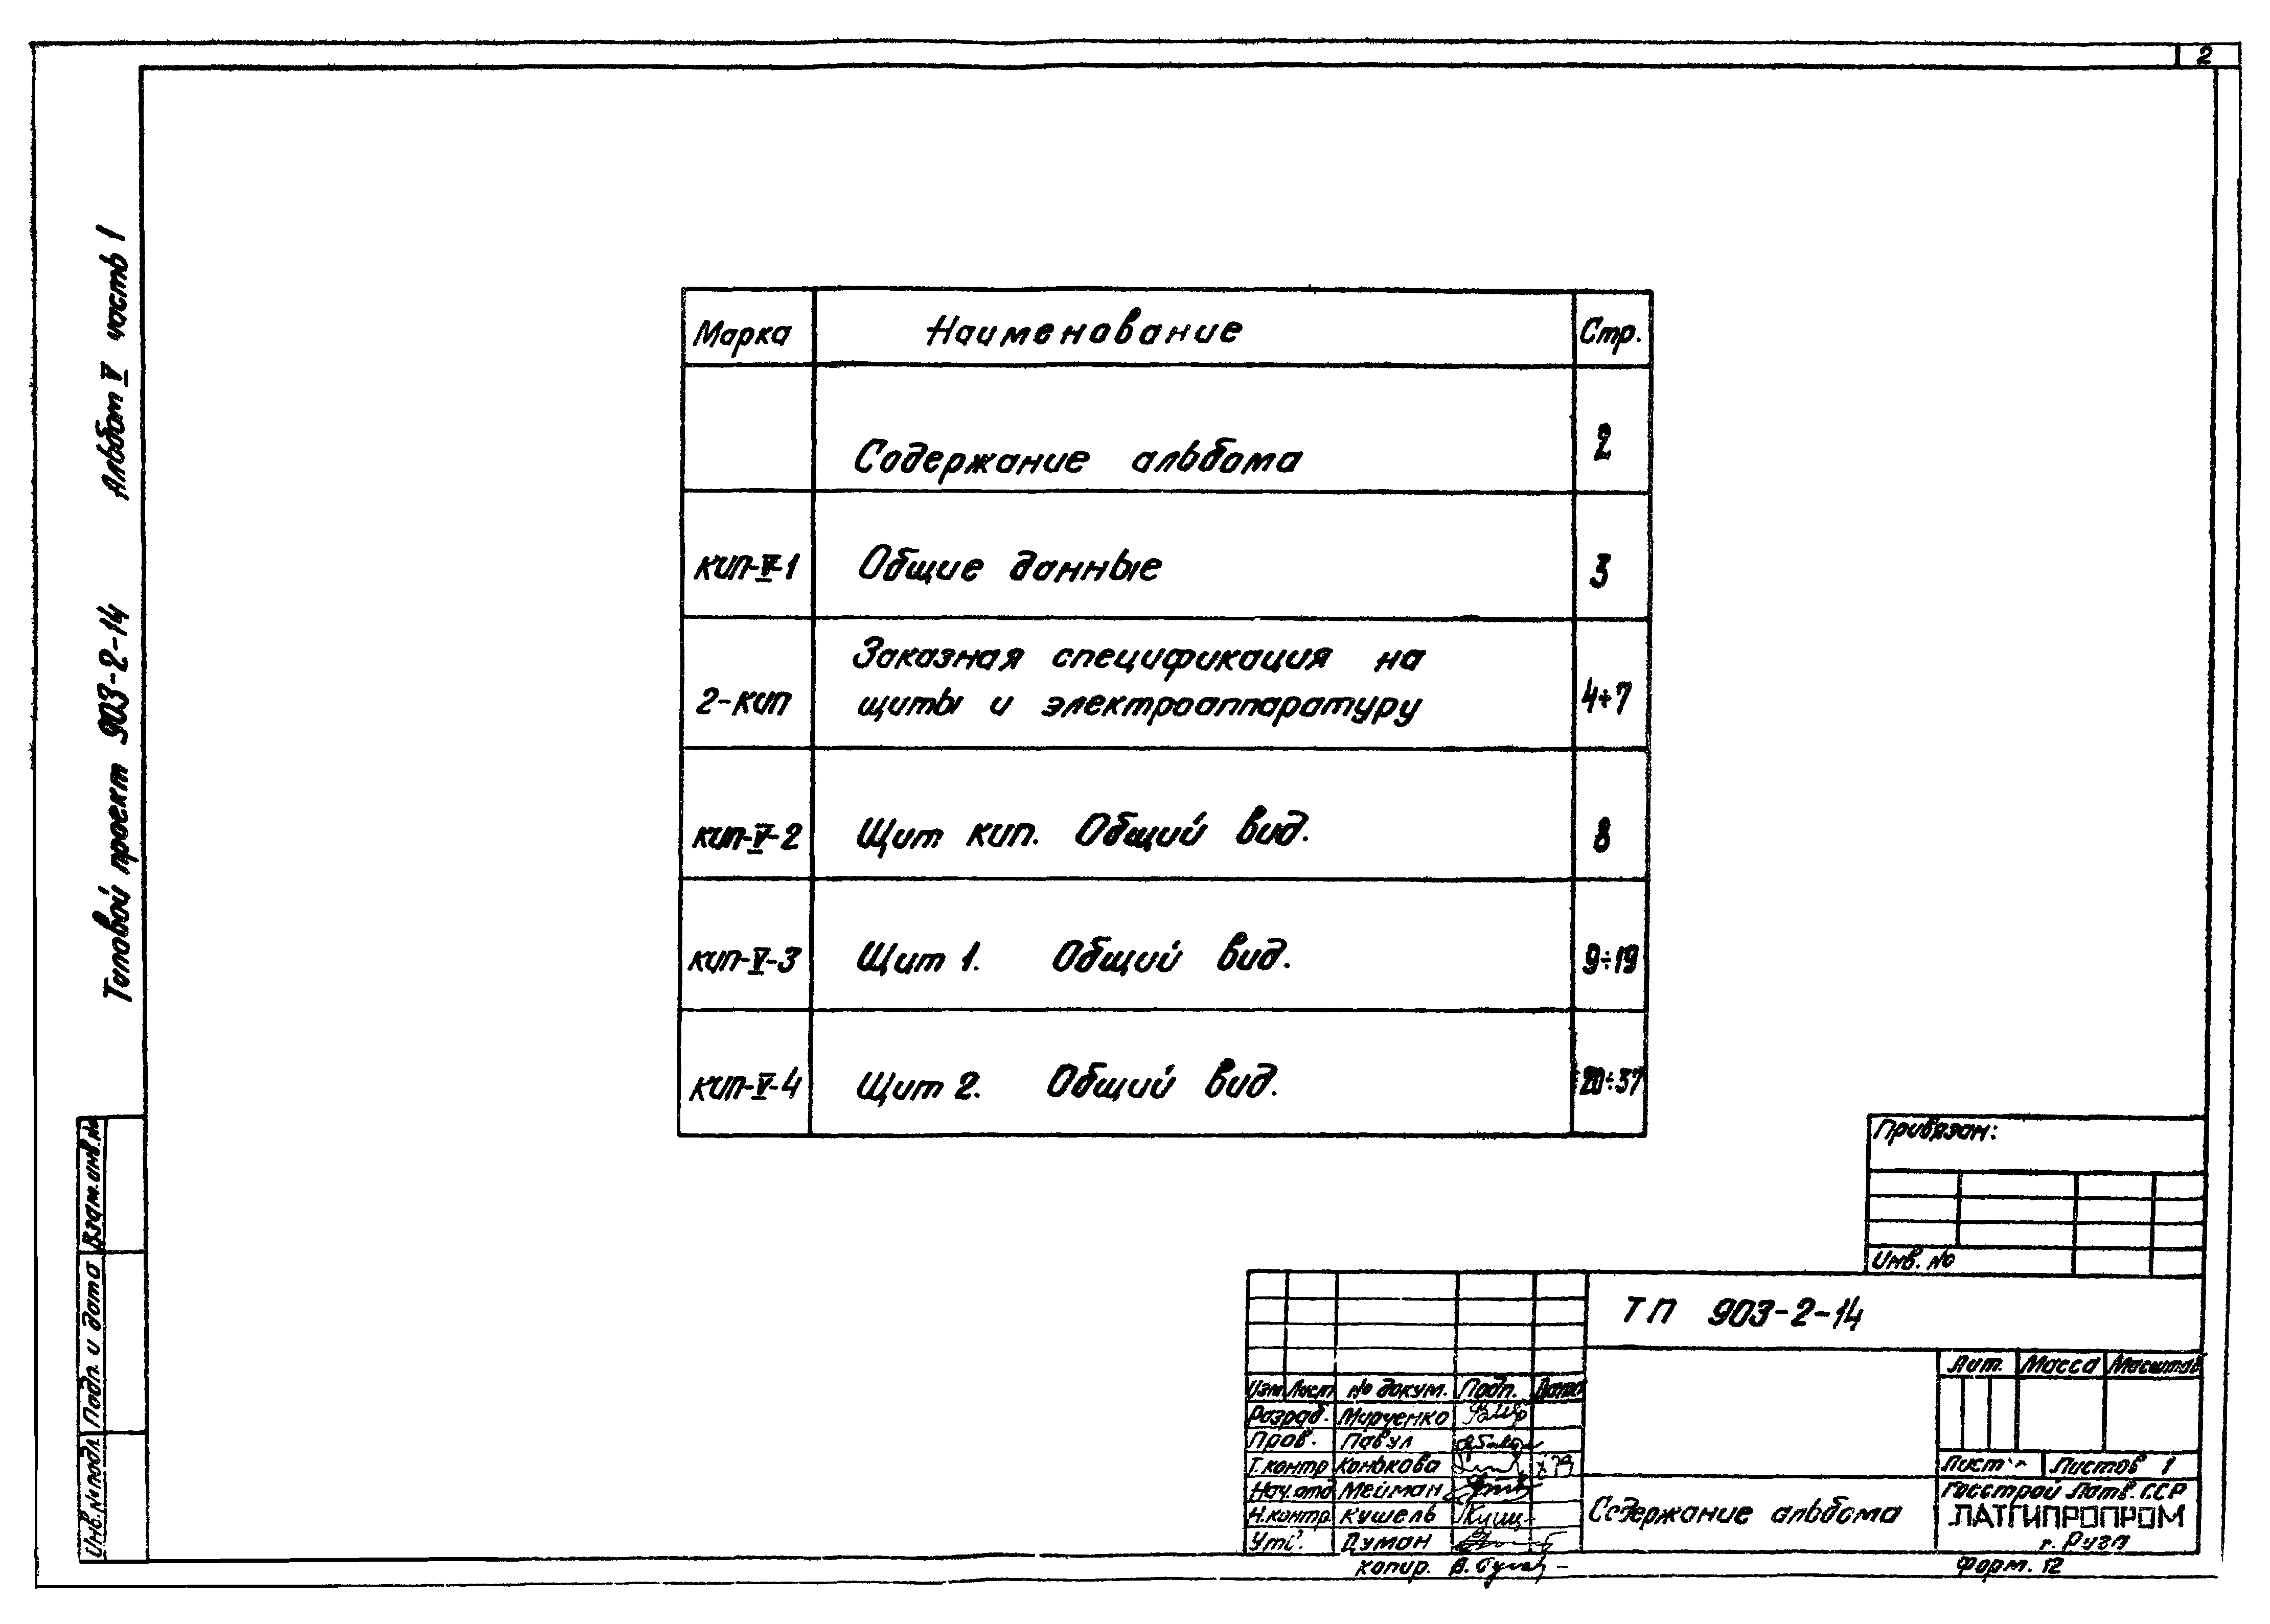 2
Альбом V часть 1
Типовой проект 903-2-14
Марка Наименование Стр.
Содержание альбома 2
КИП-V-1 Общие данные 3
Заказная спецификация на
2-КИП щиты и электроаппаратуру 4÷7
КИП-V-2 Щит КИП. Общий вид. 8
КИП-V-3 Щит 1. Общий вид. 9÷19
КИП-V-4 Щит 2. Общий вид. 20÷37
Взам. инв. №
Подп. и дата
Инв. № подл.
Привязан:
Инв. №
ТП 903-2-14
Лит. Масса Масштаб
Изм Лист № докум. Подп. Дата
Разраб. Мирченко
Пров. Павул
Т. контр Конькова
Нач. отд Мейман
Н. контр Кушель
Утв. Думан
Лист Листов 1
Содержание альбома
Госстрой Латв. ССР
ЛАТГИПРОПРОМ
г. Рига
копир.
Форм. 12